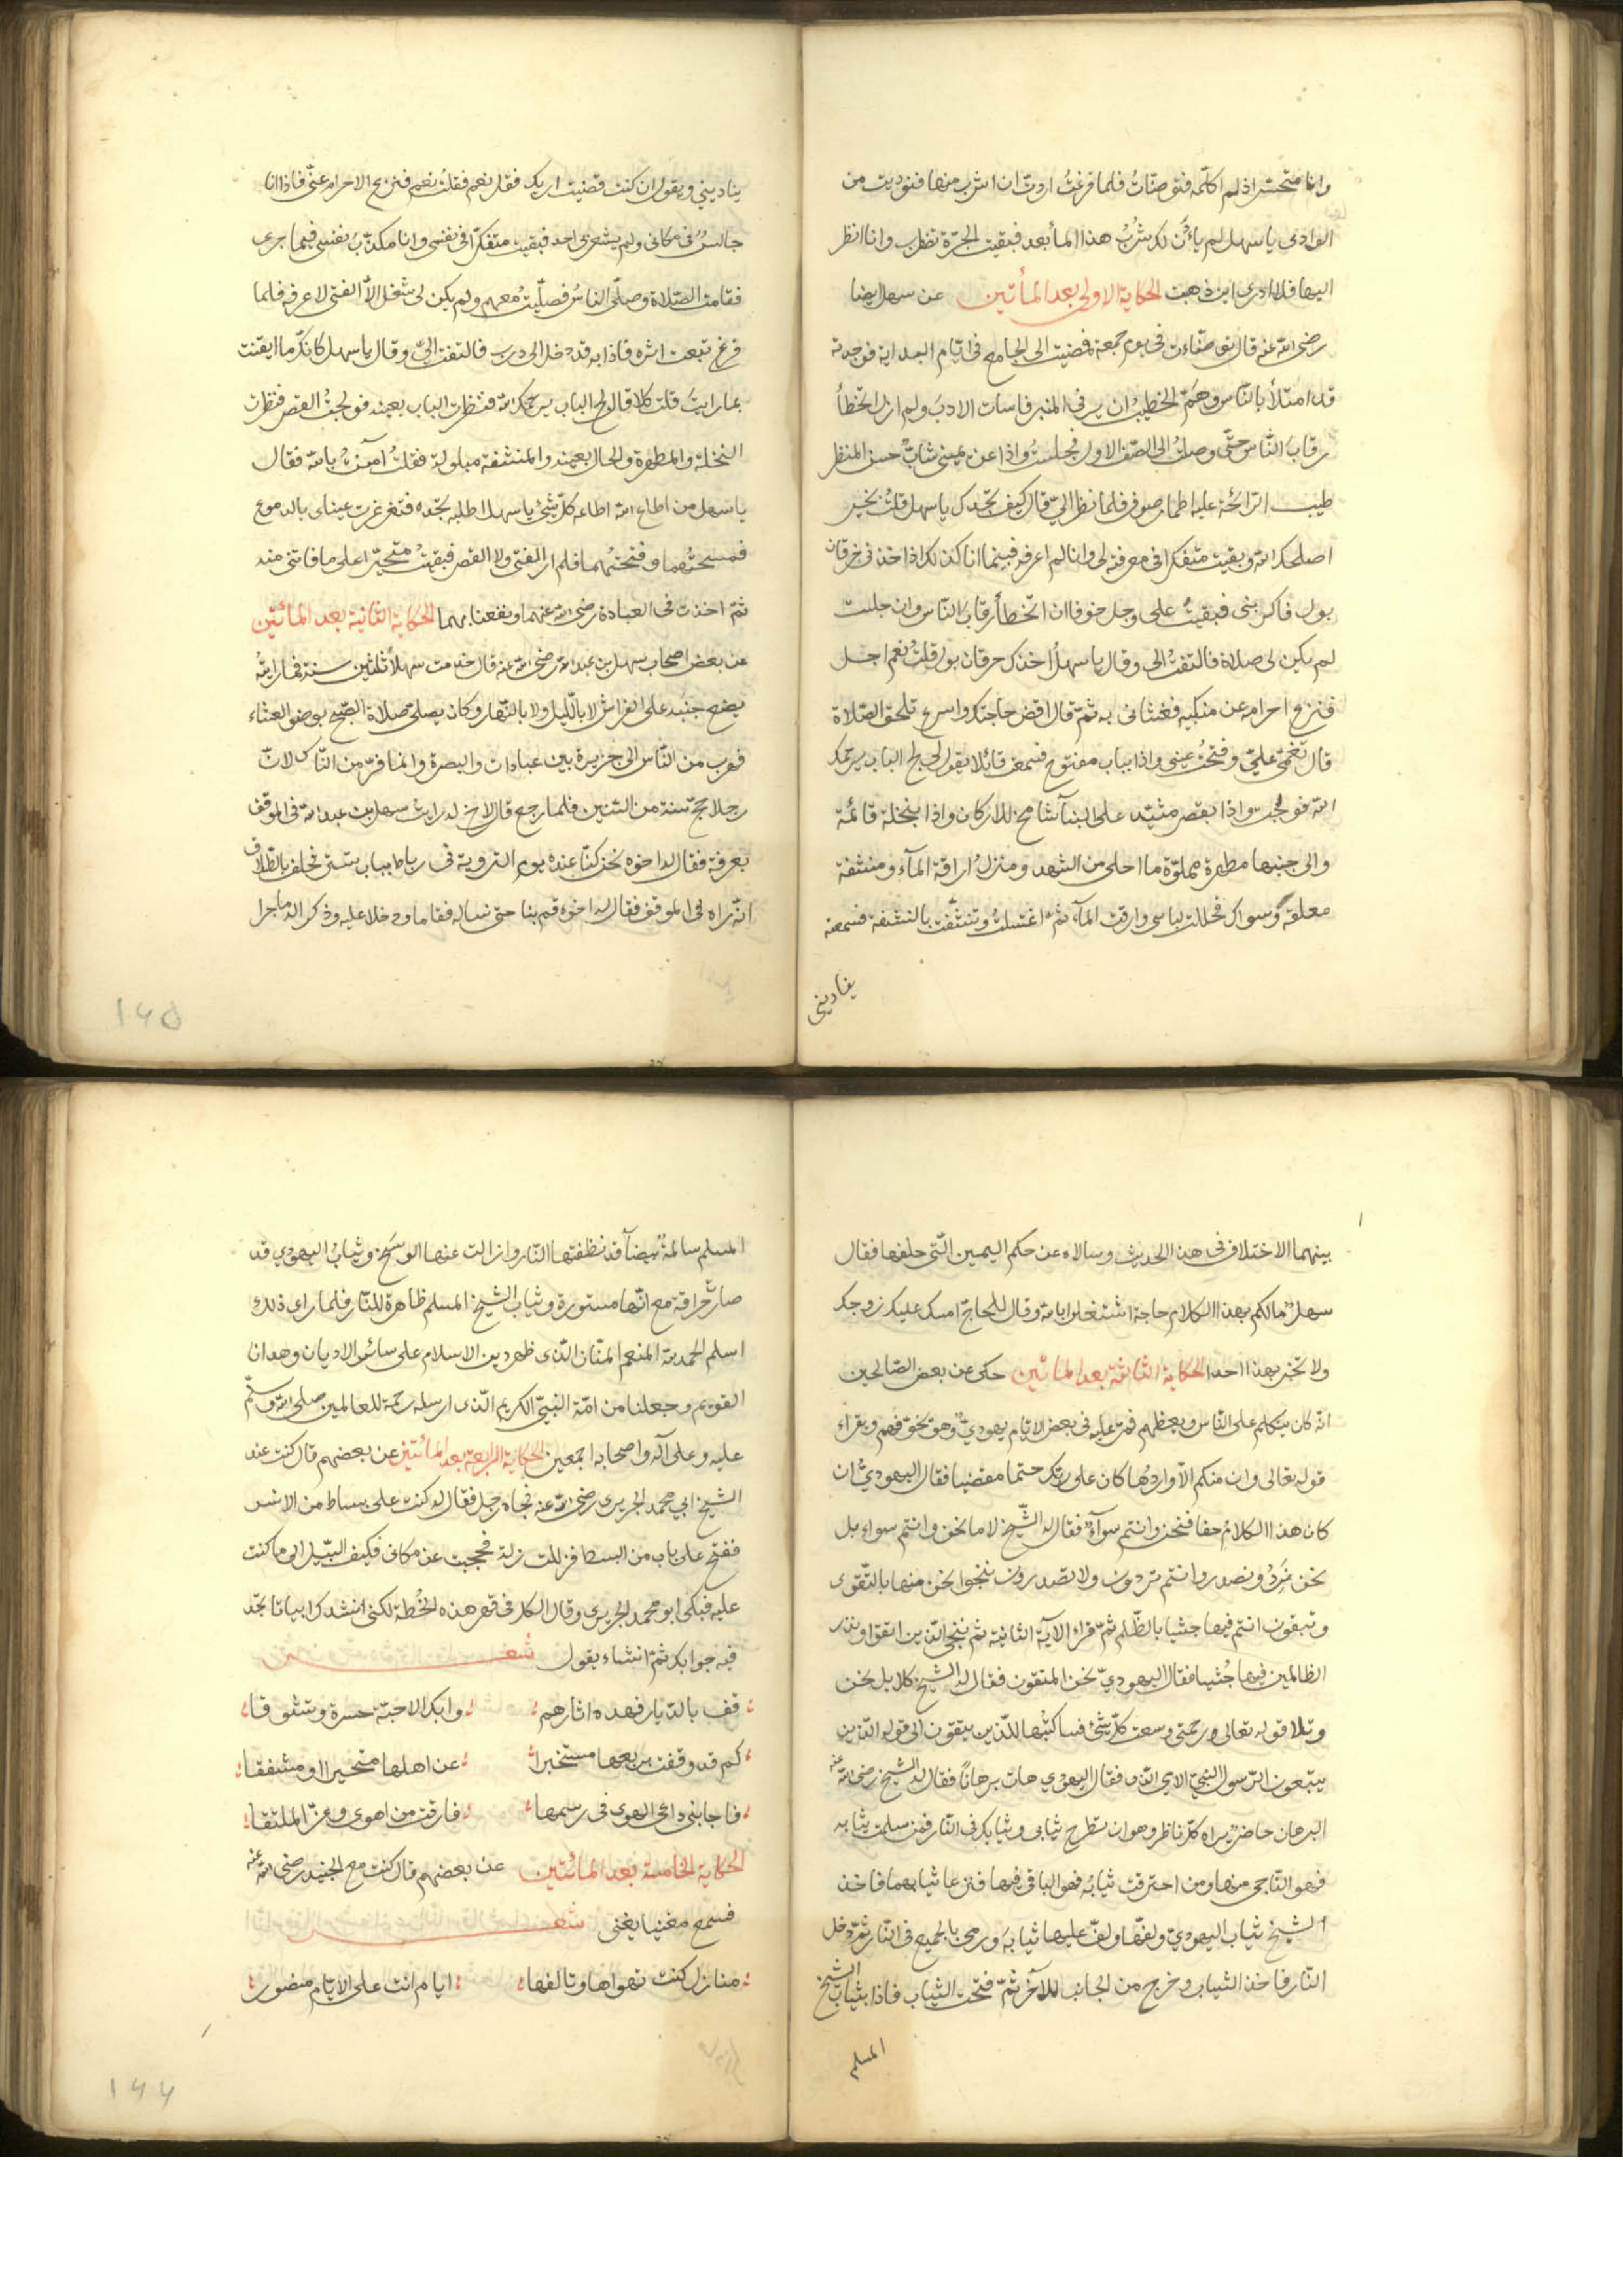 وانا متحسّر اذ لم اكلّمه فتوضّات فلما فرغتُ اردت ان اشرب منها فنوديت من
الوادى يا سهل لم يأن لك شربُ هذا المأ بعد فبقيت الجرّة تضطرب وانا انظر
اليها فلا ادرى اين ذهبت الحكاية الاولى بعد المأتين عن سهل ايضا
رضى الله عنه قال توضّاءت فى يوم جمعة فمضيت الى الجامع فى ايّام البداية فوجدته
قد امتلأ بالنّاس وهمّ الخطيبُ ان يرقى المنبر فاسات الادبَ ولم ازل اتخطأ
رقابَ النّاس حتّى وصلتُ الى الصّف الاول فجلستُ واذا عن يمينى شابٌّ حسن المنظر
طيب الرّائحة عليه اطمار صوف فلما نظر الىّ قال كيف تجدك يا سهل قلتُ بخير
اصلحك الله وبقيت متفكرا فى معرفته لى وانا لم اعرفه فبينما انا كذلك اذ اخذنى حرقان
بول فاكربنى فبقيتُ على وجل خوفا ان اتخطأ رقابَ النّاس وان جلست
لم يكن لى صلاة فالتفتُ الى وقال يا سهلُ اخذك حرقان بول قلتُ نعم اجل
فنزع احرامه عن منكبيه فغشانى به ثمّ قال اقض حاجتك واسرع تلحق الصّلاة
قال فغمى علىّ وفتحتُ عينى واذا بباب مفتوح فسمعت قائلا يقول لى لج الباب يرحمك
الله فولجت واذا بقصر مشيّد على البنآ شامخ الاركان واذا بنخلة قائمة
والى جنبها مطهرة مملوّة ما احلى من الشهد ومنزلُ اراقة المآء ومنشفة
معلقة وسواك فحللت لباسى وارقت المآء ثم اغتسلتُ وتنشّفت بالمنشفة فسمعته
ينادينى
ينادينى ويقول ان كنت قضيت اربك فقل نعم فقلتُ نعم فنزع الاحرام عنّى فاذا انا
جالسٌ فى مكانى ولم يشعر بى احد فبقيت متفكرا فى نفسى وانا مكذّبُ نفسى فيما جرى
فقامت الصّلاة وصلّى النّاسُ فصلّيتُ معهم ولم يكن لى شغل الاّ الفتى لاعرفه فلما
فرغ تبعت اثره فاذا به قد دخل الى درب فالتفت الىّ وقال يا سهل كانّك ما ايقنت
بما رايت قلت كلا قال لج الباب يرحمك الله فنظرت الباب بعينه فولجتُ القصر فنظرت
النخلة والمطهرة والحال بعينه والمنشفة مبلولة فقلتُ آمنتُ بالله فقال
يا سهل من اطاع الله اطاعه كلّ شئ يا سهل اطلبه تجده فتغرغرت عيناى بالدموع
فمسحتُهما وفتحتُهما فلم ار الفتى ولا القصر فبقيتُ متحيّرا على ما فاتنى منه
ثمّ اخذت فى العبادة رضى الله عنهما ونفعنا بهما الحكاية الثانية بعد المأتين
عن بعض اصحاب سهل بن عبدالله رضى الله عنه قال خدمت سهلاً ثلثين سنة فما رايتُه
يضع جنبه على الفراش لا بالّليل ولا بالنّهار وكان يصلّى صلاة الصّبح بوضو العشاء
فهرب من النّاس الى جزيرة بين عبادان والبصرة وانما فرّ من النّاس لانّ
رجلا حجّ سنة من السّنين فلما رجع قال لاخ له رايت سهل بن عبدالله فى الموقف
بعرفة فقال له اخوه نحن كنّا عنده يوم التروية فى رباط بباب تستر فحلف بالطّلاق
انّه راه فى الموقف فقال له اخوه قم بنا حتّى نساله فقاما ودخلا عليه وذكرا له ما جرا
١٦٥
بينهما الاختلاف فى هذا الحديث وسالاه عن حكم اليمين الّتى حلفها فقال
سهلٌ مالكم بهذا الكلام حاجة اشتغلوا بالله وقال للحاج امسك عليك زوجك
ولا تخبر بهذا احدا الحكاية الثالثة بعد المأتين حكى عن بعض الصّالحين
انّه كان يتكلم على النّاس ويعظهم فمرّ عليه فى بعض الايّام يهودىّ وهو يخوّفهم ويقراء
قوله تعالى وان منكم الاّ واردُها كان على ربّك حتما مقضيا فقال اليهودىُّ ان
كان هذا الكلامُ حقا فنحن وانتم سوآءٌ فقال له الشّيخ لا ما نحن وانتم سواء بل
نحن نَرِدُ ونصدر وانتم تردون ولا تصدرون ننجوا نحن منها بالتّقوى
وتبقون انتم فيها جثيا بالظّلم ثمّ قراء الآية الثانية ثم ننجى الّذين اتقوا ونذر
الظالمين فيها جُثيا فقال اليهودىّ نحن المتقون فقال له الشيخ كلا بل نحن
وتلا قوله تعالى ورحمتى وسعت كلّ شئ فساكتبُها للذّين يتقون الى قوله الذّين
يتبعون الرّسول النبىّ الامى الذى فقال اليهودى هات برهاناً فقال له الشيخ رضى الله عنه
البرهان حاضرٌ يراه كلّ ناظر وهو ان تطرح ثيابى وثيابك فى النّار فمن سلمت ثيابه
فهو النّاجى منها ومن احترقت ثيابُه فهو الباقى فيها فنزعا ثيابهما فاخذ
الشيخ ثياب اليهودىّ ولفّها ولفّ عليها ثيابَه ورمى بالجميع فى النّار ثمّ دخل
النّار فاخذ الثياب وخرج من الجانب الآخر ثمّ فتحت الثياب فاذا بثياب الشيخ
المسلم
المسلم سالمةٌ بيضآ قد نظفتها النّار وازالت عنها الوسَخ وثيابُ اليهودى قد
صارت حراقة مع انّها مستورة وثياب الشيخ المسلم ظاهرة للنّار فلما راى ذلك
اسلم الحمدلله المنعم المنّان الّذى ظهر دين الاسلام على سائر الاديان وهدانا
القويم وجعلنا من امّة النبىّ الكريم الّذى ارسله رحمة للعالمين صلى الله وسلّم
عليه وعلى آله واصحابه اجمعين الحكاية الرابعة بعد المائتين عن بعضهم قال كنت عند
الشيخ ابى محمد الجريرى رضى الله عنه فجاه رجل فقال له كنت على بساط من الانس
ففتح على باب من البسط فزللت زلة فحجبت عن مكانى فكيف السّبيل الى ما كنت
عليه فبكى ابو محمد الجريرى وقال الكل فى قهر هذه الخُطة لكنى انشدك ابياتا تجد
فيه جوابك ثمّ انشاء يقول شعر
قف بالدّيار فهده اثارهم وابك الاحبّة حسرة وتشوقا
كم قد وقفت بربعها مستخبرا عن اهلها متحيرا او مشفقا
فاجابنى داعى الهوى فى رسمها فارقت من اهوى وعزّ الملتقا
الحكاية الخامسة بعد المائتين عن بعضهم قال كنت مع الجنيد رضى الله عنه
فسمع مغنيا يغنى شعر
منازل كنت تهواها وتالفها ايام انت على الايّام منصور
١٦٦